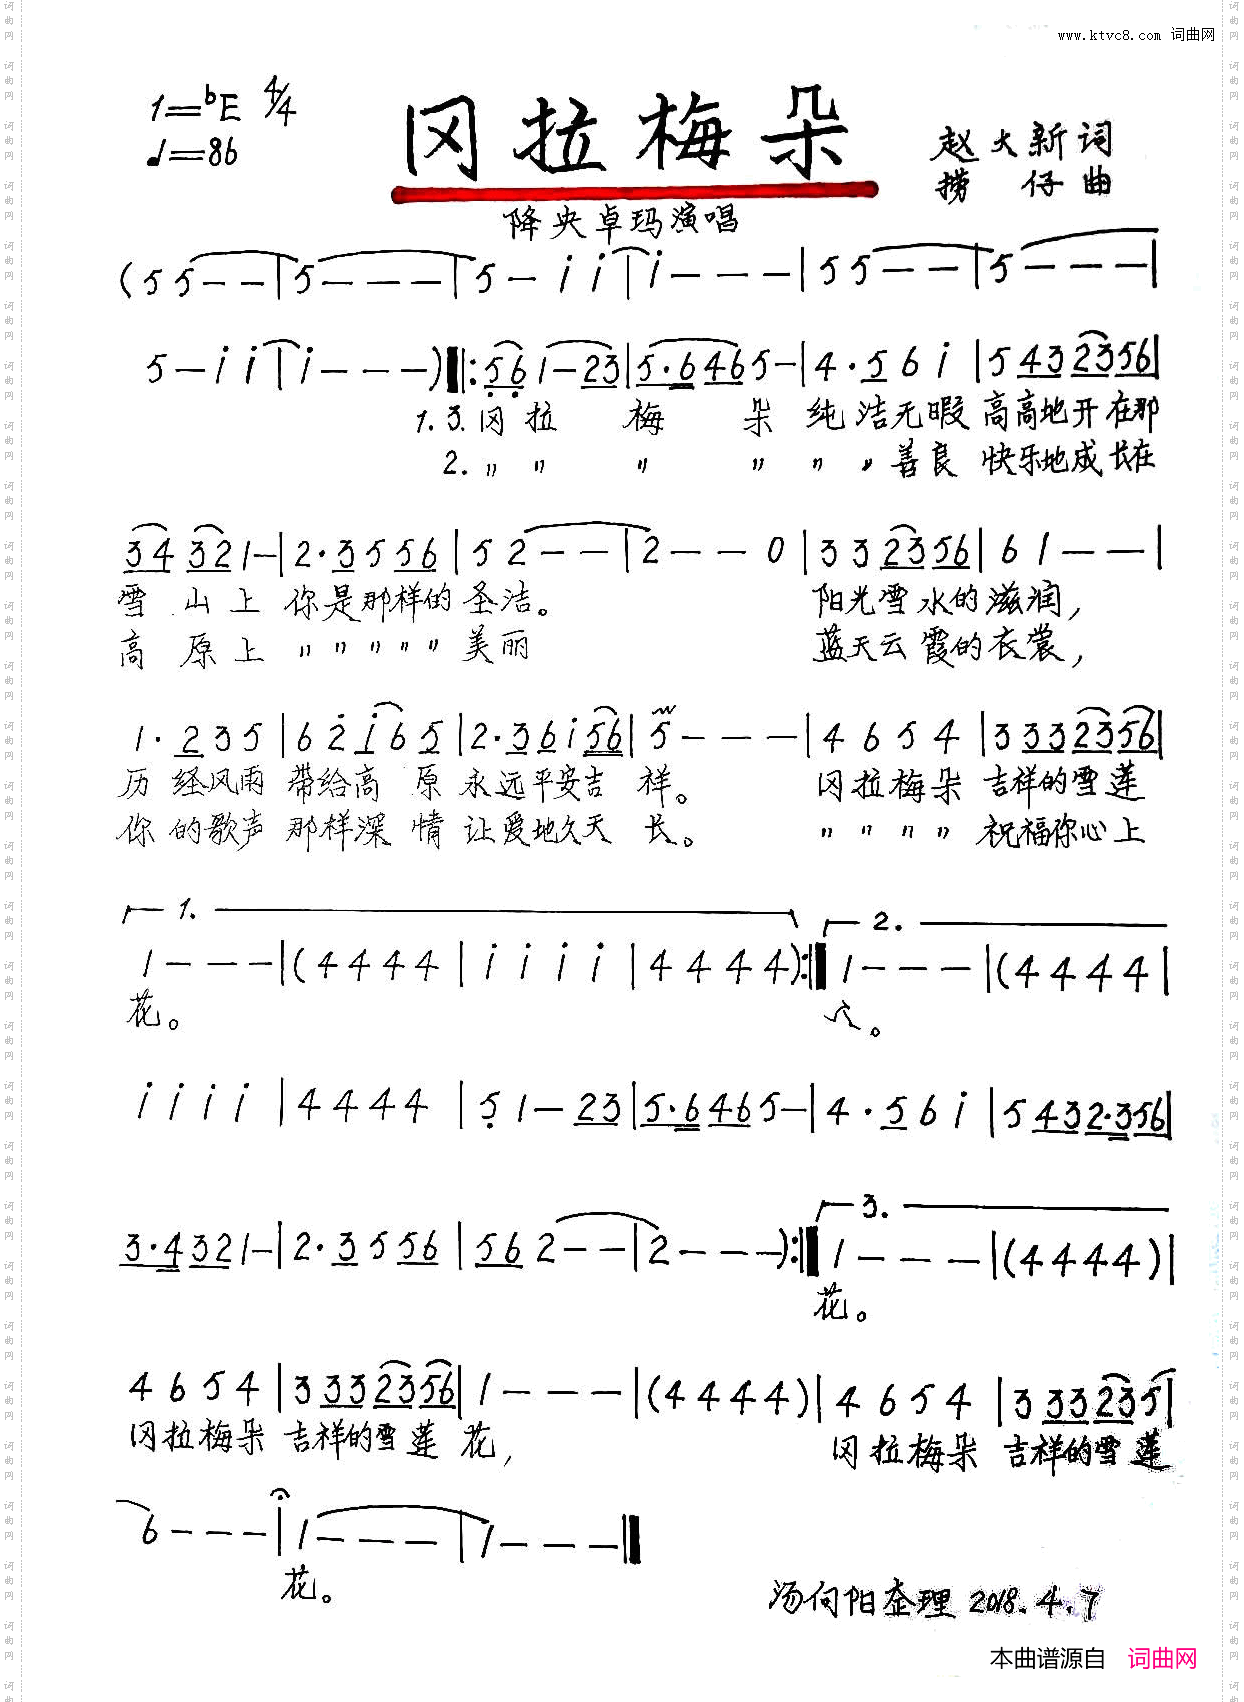 www.ktvc8.com 词曲网
1=♭E 4/4
♩=86
冈拉梅朵
赵大新词
捞仔曲
降央卓玛演唱
(5 5 5 - - | 5 - - - | 5 - i i | i - - - | 5 5 - - | 5 - - - |
5 - i i | i - - - ) ‖: 5 6 1 - 2 3 | 5 · 6 4 6 5 - | 4 · 5 6 i | 5 4 3 2 3 5 6 |
1. 3. 冈拉 梅 朵 纯洁无暇 高高地开在那
2. 〃 〃 〃 〃 〃 〃 善良 快乐地成长在
3 4 3 2 1 - | 2 · 3 5 5 6 | 5 2 - - | 2 - - 0 | 3 3 2 3 5 6 | 6 1 - - |
雪 山上 你是那样的圣洁。 阳光雪水的滋润，
高 原上 〃 〃 〃 〃 〃 美丽 蓝天云霞的衣裳，
1 · 2 3 5 | 6 2̇ i 6 5 | 2 · 3 6 i 5 6 | 5 - - - | 4 6 5 4 | 3 3 3 2 3 5 6 |
历 经风雨 带给高 原 永远平安吉 祥。 冈拉梅朵 吉祥的雪莲
你 的歌声 那样深 情 让爱地久天 长。 〃 〃 〃 〃 祝福你心上
1. 2.
1 - - - | (4 4 4 4 | i i i i | 4 4 4 4) :‖ 1 - - - | (4 4 4 4 |
花。
i i i i | 4 4 4 4 | 5 1 - 2 3 | 5 · 6 4 6 5 - | 4 · 5 6 i | 5 4 3 2 · 3 5 6 |
3.
3 · 4 3 2 1 - | 2 · 3 5 5 6 | 5 6 2 - - | 2 - - - ) :‖ 1 - - - | (4 4 4 4) |
花。
4 6 5 4 | 3 3 3 2 3 5 6 | 1 - - - | (4 4 4 4) | 4 6 5 4 | 3 3 3 2 3 5 |
冈拉梅朵 吉祥的雪莲 花， 冈拉梅朵 吉祥的雪莲
6 - - - | 1 - - - | 1 - - - ‖
花。
汤向阳整理 2018.4.7
本曲谱源自 词曲网